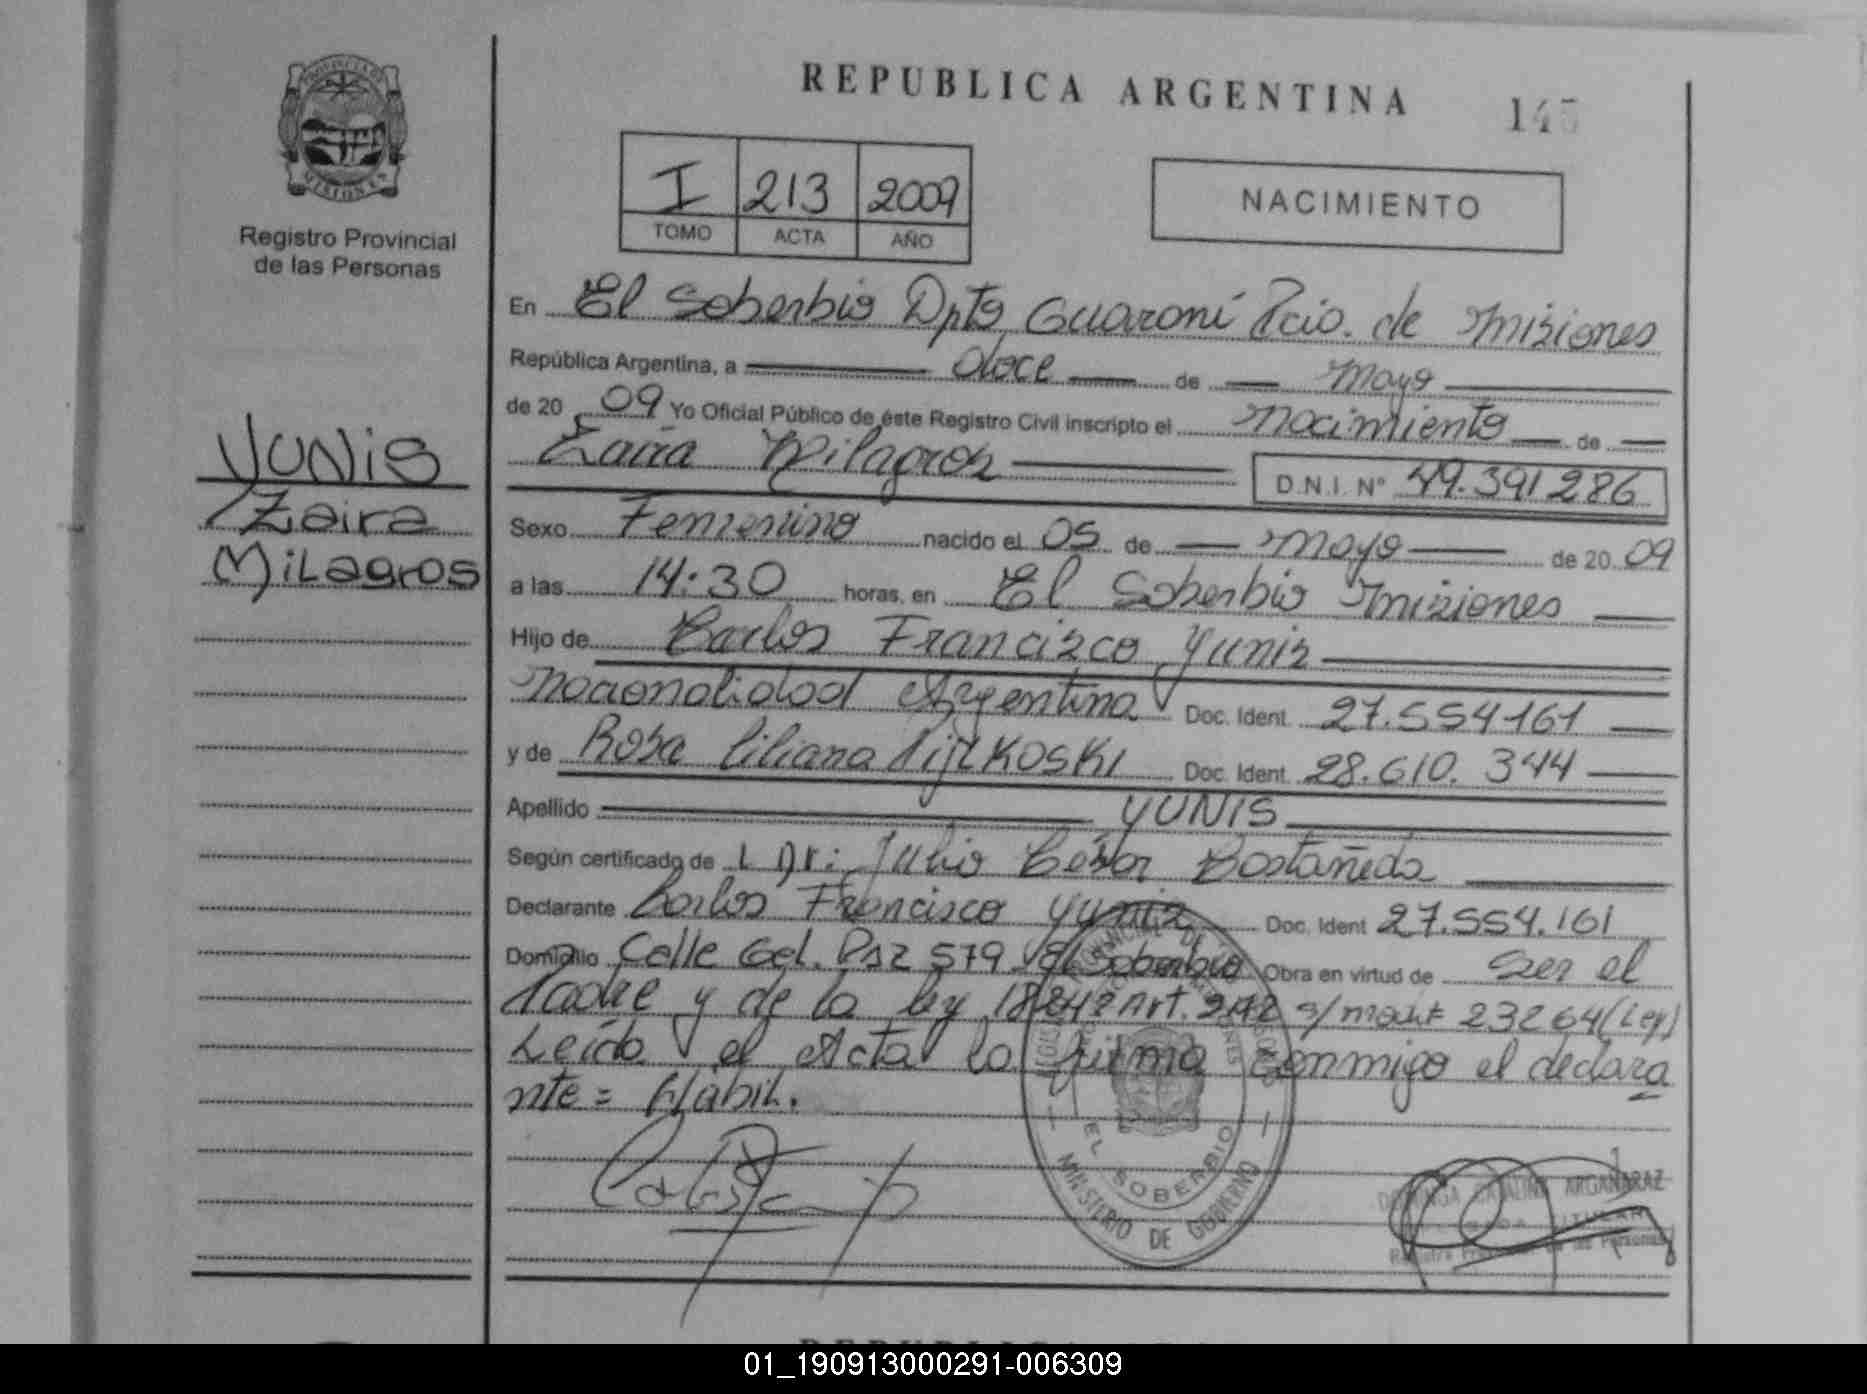 PROVINCIA DE
MISIONES
Registro Provincial
de las Personas
YUNIS
Zaira
Milagros
REPUBLICA ARGENTINA 145
I 213 2009
TOMO ACTA AÑO
NACIMIENTO
En El Soberbio Dpto Guaraní Pcia. de Misiones
República Argentina, a doce de Mayo
de 2009 Yo Oficial Público de éste Registro Civil inscripto el Nacimiento de
Zaira Milagros D.N.I. Nº 49.391286
Sexo Femenino nacido el 05 de Mayo de 2009
a las 14:30 horas, en El Soberbio Misiones
Hijo de Carlos Francisco Yunis
Nacionalidad Argentina Doc. Ident. 27.554161
y de Rosa Liliana Doc. Ident. 28.610.344
Apellido YUNIS
Según certificado de L Dr: Julio César Castañeda
Declarante Carlos Francisco Yunis Doc. Ident 27.554.161
Domicilio Calle Gel. Paz 579 El Soberbio Obra en virtud de Ser el
Padre y de la ley Art. s/modif 23264 (Ley)
Leída el Acta la firma conmigo el declara
nte = Hábil.
EL SOBERBIO
MINISTERIO DE GOBIERNO
CATALINA ARGAÑARAZ
Registro Provincial de las Personas
01_190913000291-006309